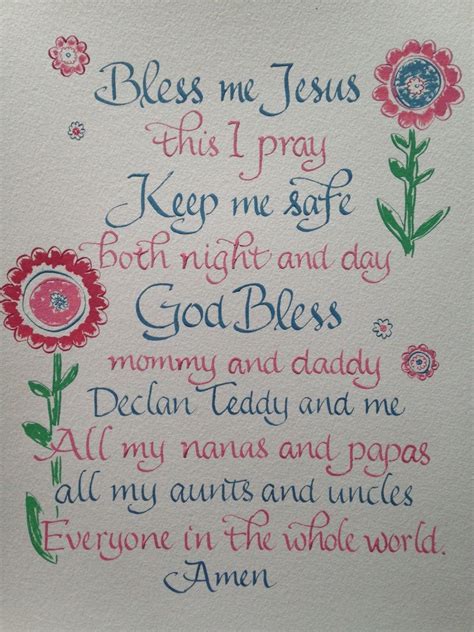 Bless me Jesus
this I pray
Keep me safe
both night and day
God Bless
mommy and daddy
Declan Teddy and me
All my nanas and papas
all my aunts and uncles
Everyone in the whole world.
Amen